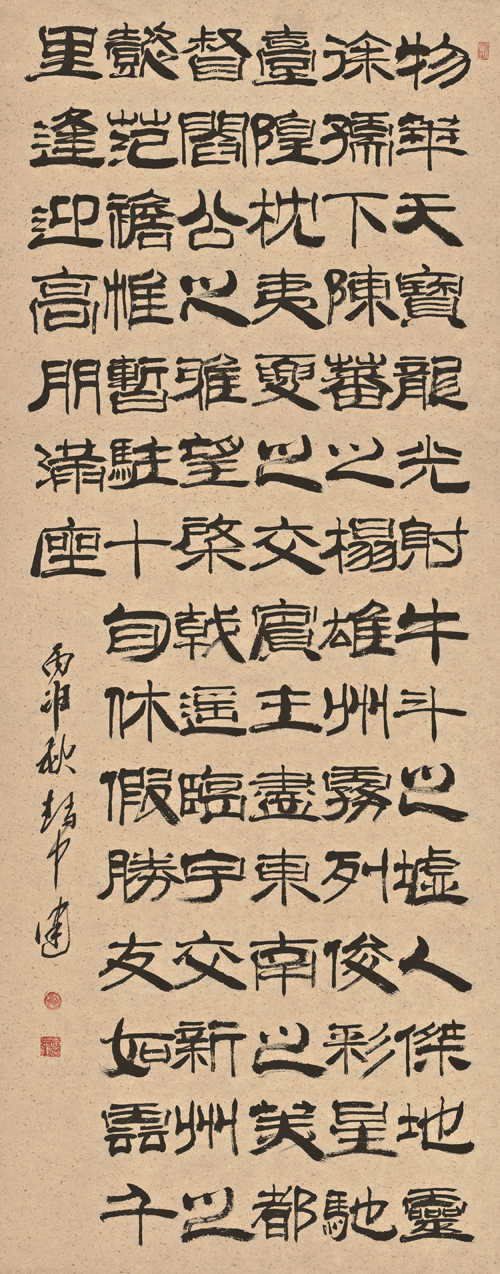 物華天寶龍光射牛斗之墟人傑地靈
徐孺下陳蕃之榻雄州霧列俊彩星馳
臺隍枕夷夏之交賓主盡東南之美都
督閻公之雅望棨戟遥臨宇交新州之
懿范襜帷暫駐十旬休假勝友如雲千
里逢迎高朋滿座
丙申秋 中建